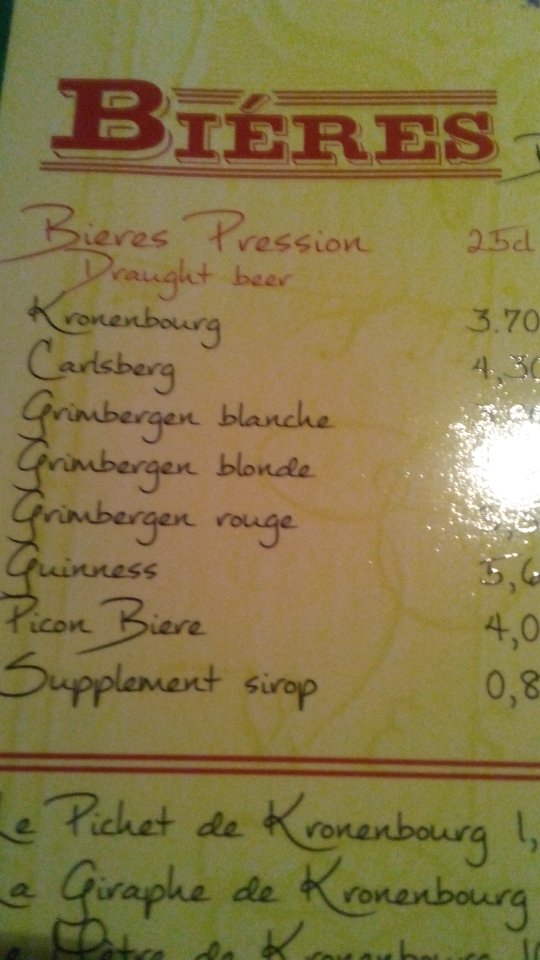 BIÉRES
Bieres Pression 25cl
Draught beer
Kronenbourg 3.70
Carlsberg 4,30
Grimbergen blanche
Grimbergen blonde
Grimbergen rouge
Guinness 5,6
Picon Biere 4,0
Supplement sirop 0,8
Le Pichet de Kronenbourg 1,
La Giraphe de Kronenbourg
de Kronenbourg